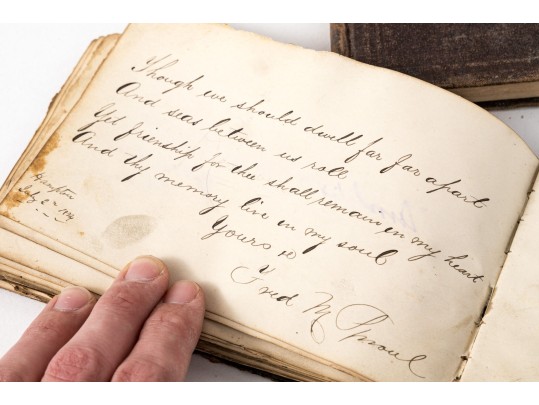 Though we should dwell far far apart
And seas between us roll
Yet friendship for thee shall remain in my heart
And thy memory live in my soul
Yours
Fred M Sproul
Hampton